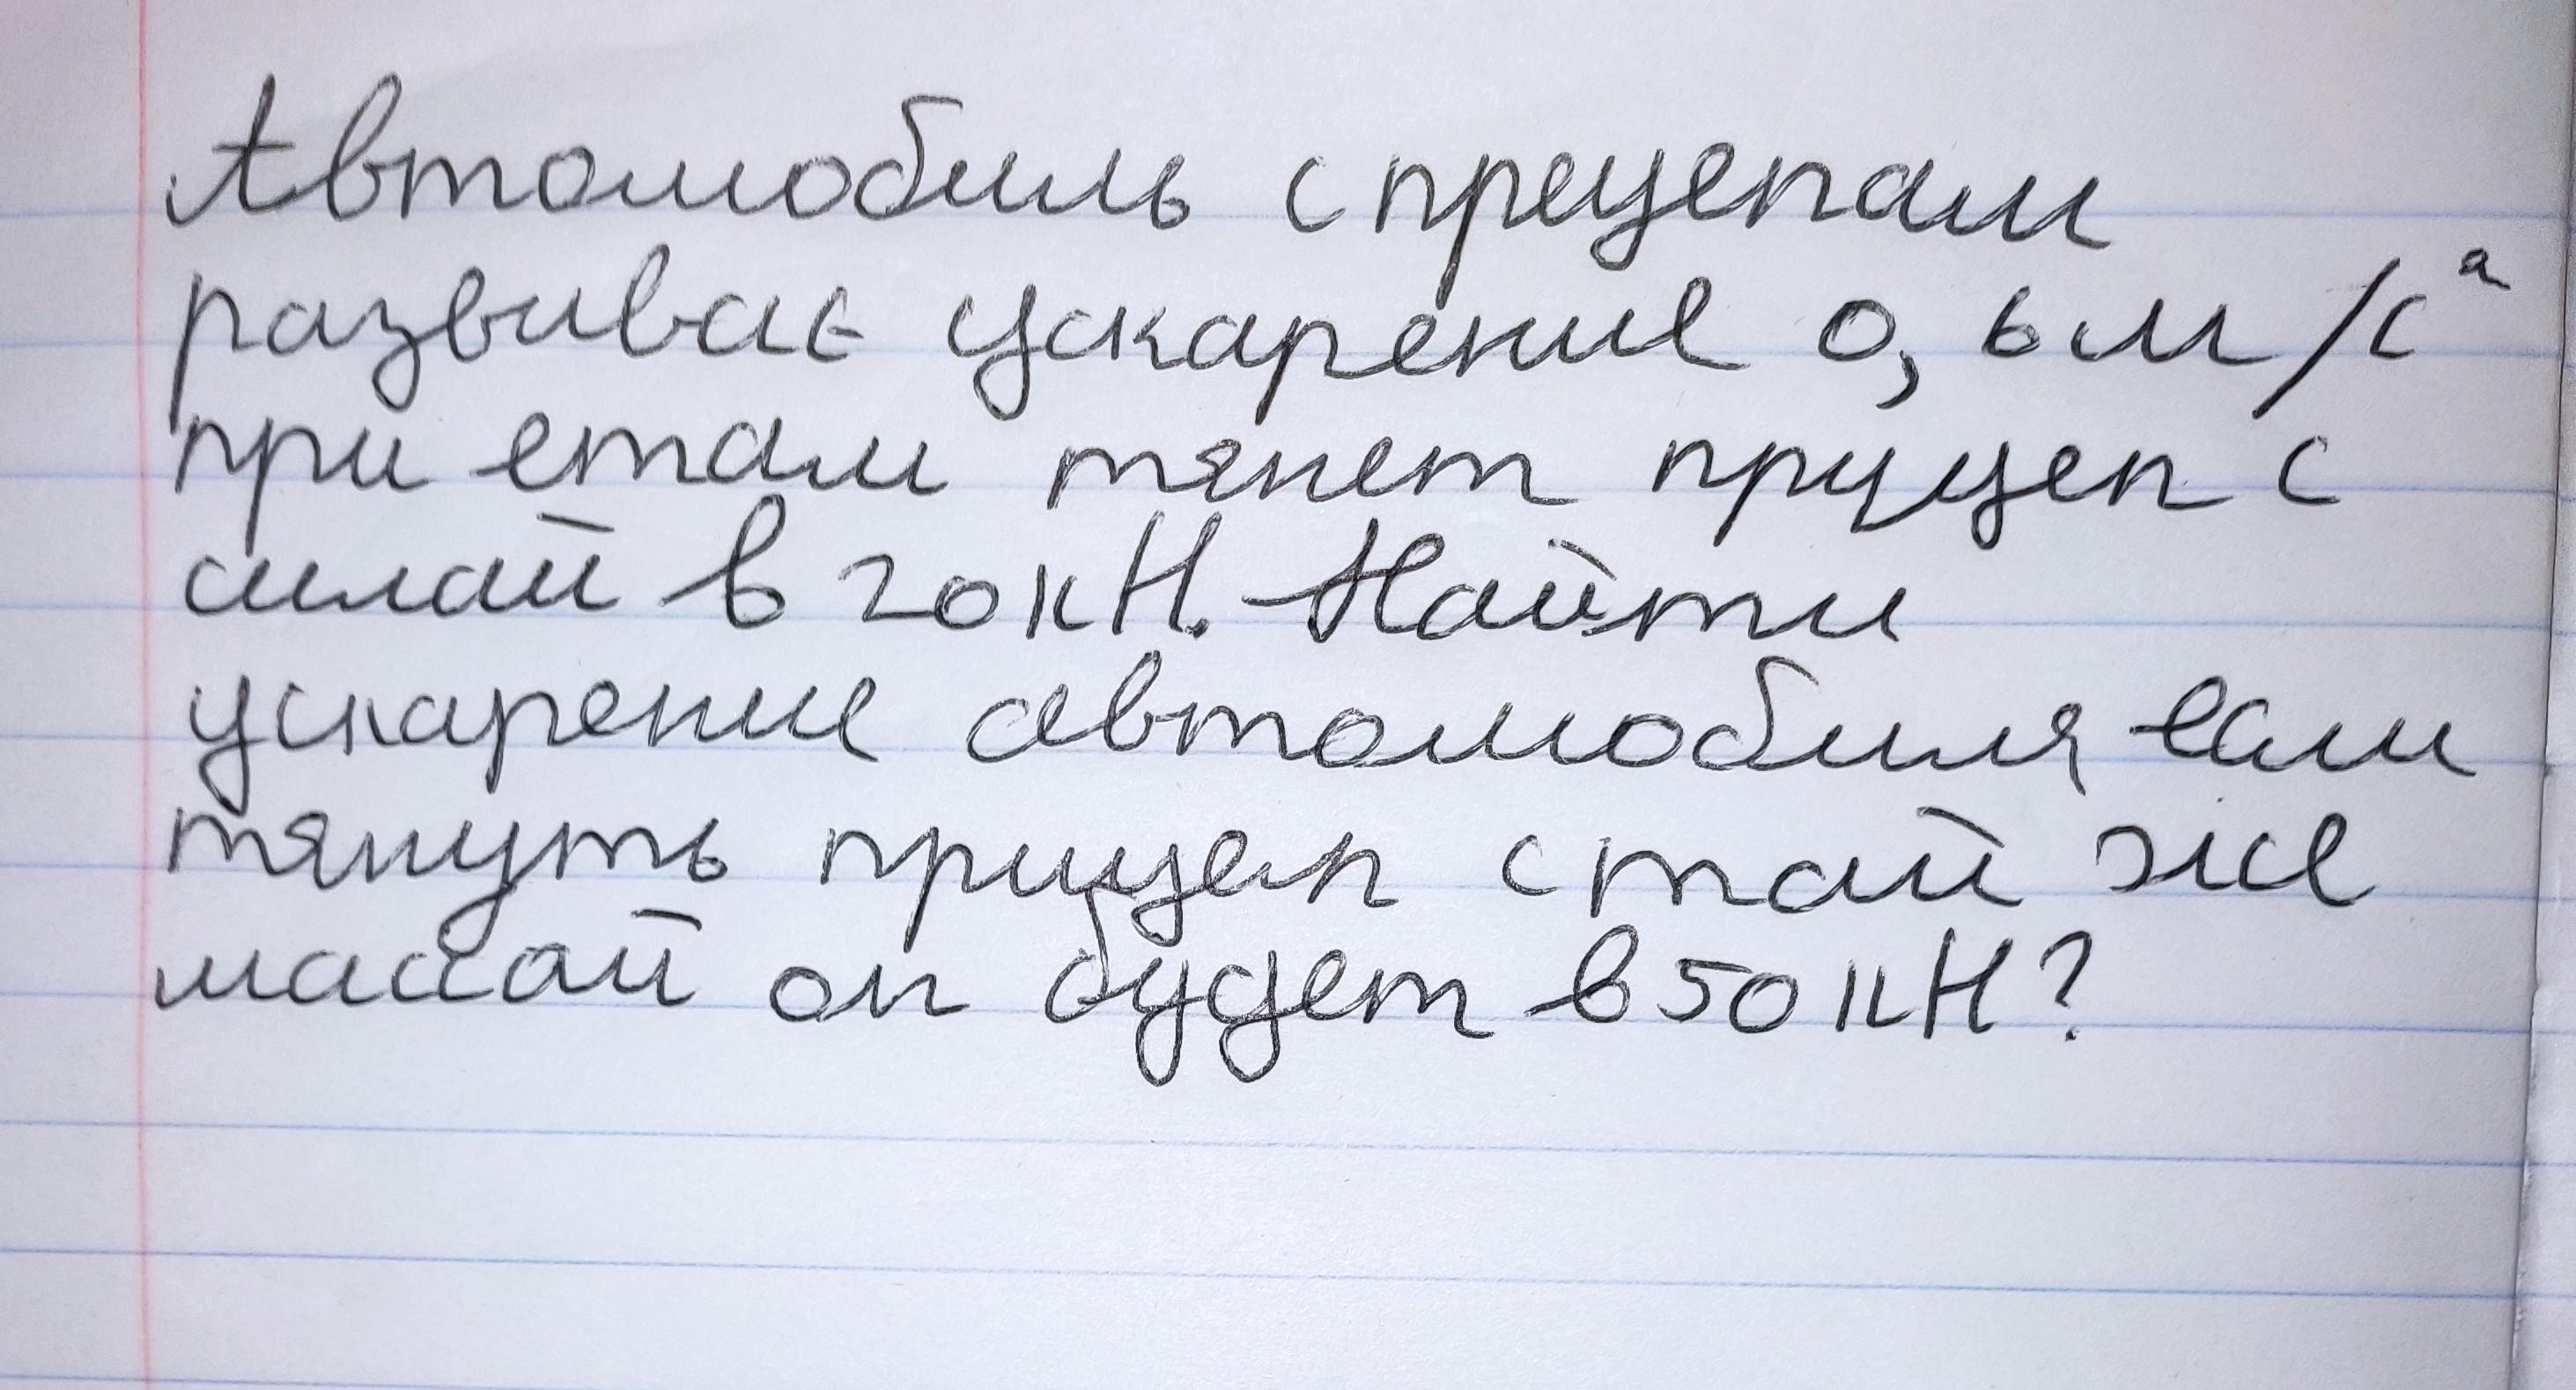 Автомобиль с прецепам
развивае ускарение 0,6м/с²
при етам тянет прицеп с
силай в 20кН. Найти
ускарение автомобиля если
тянуть прицеп с тай же
массай он будет в 50кН?